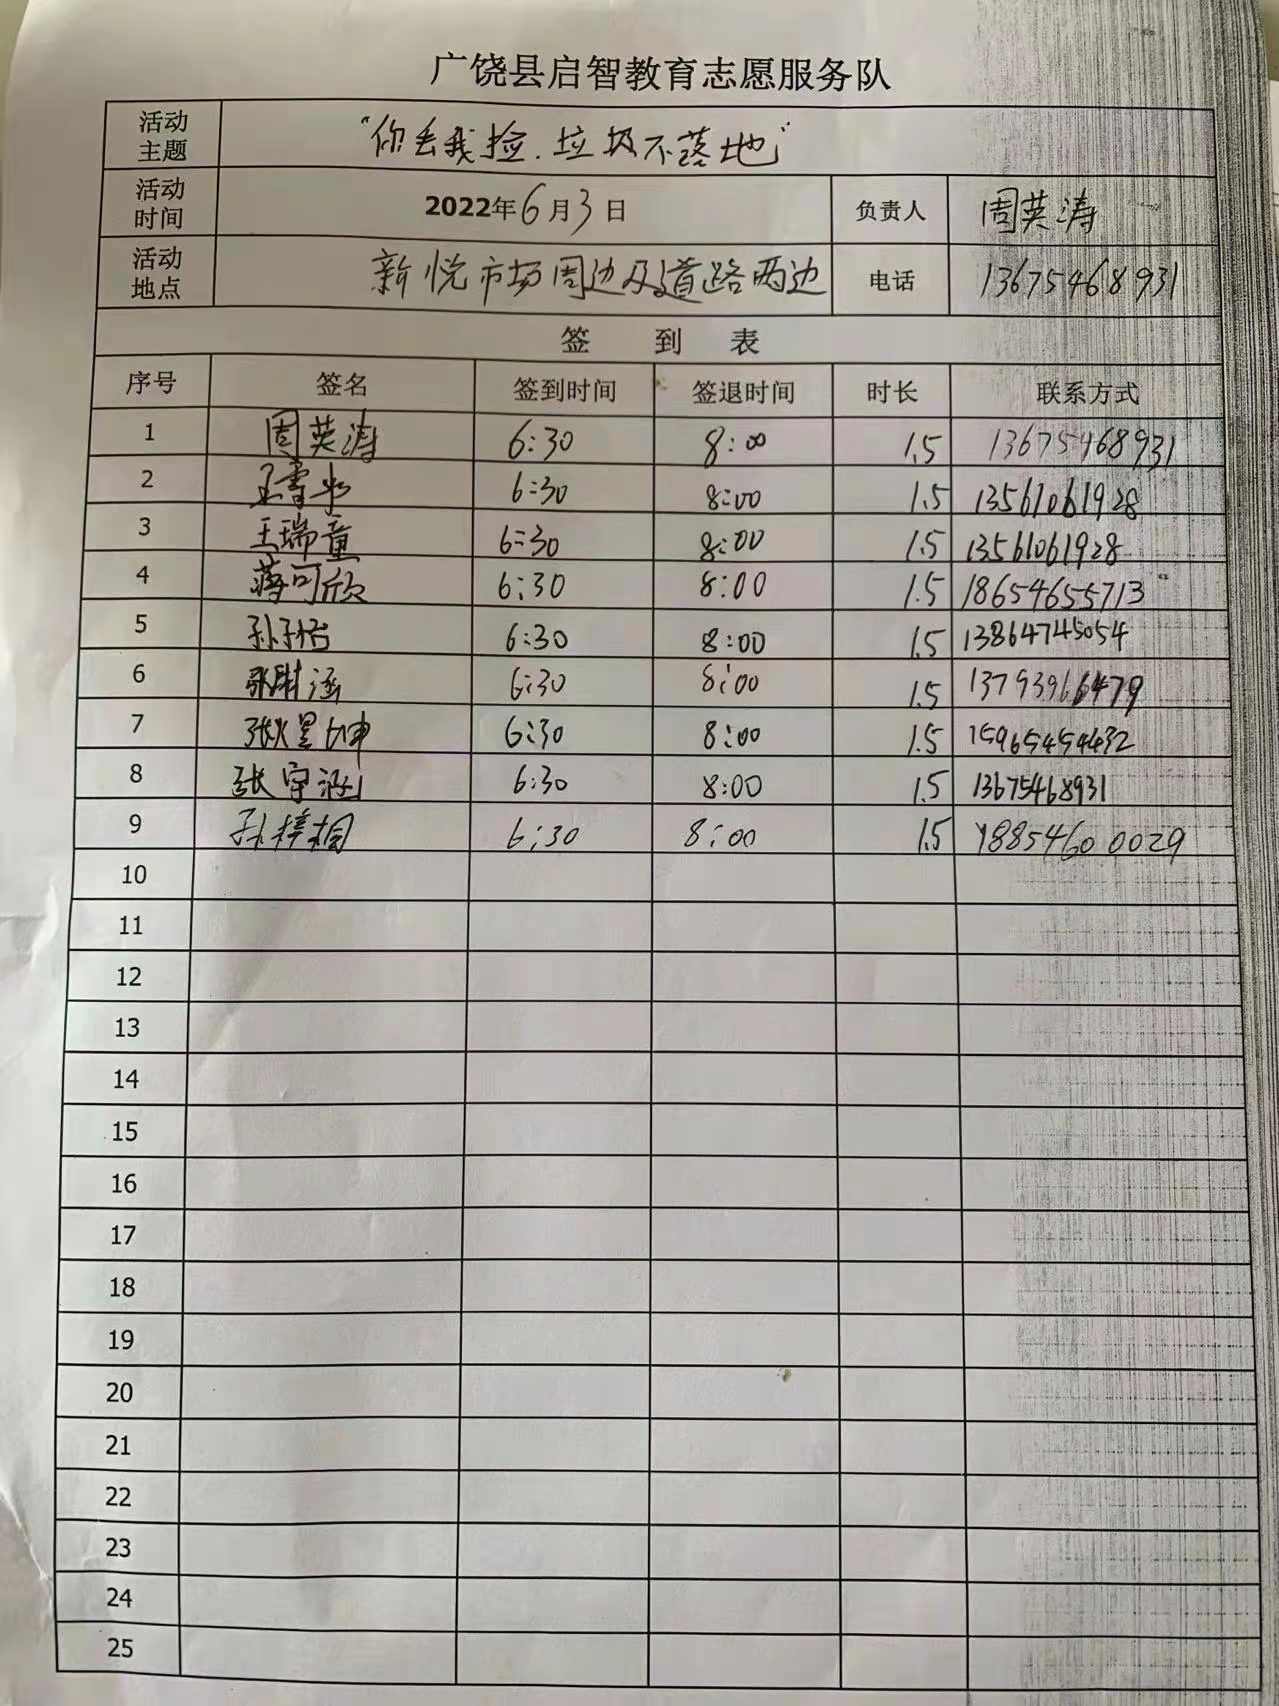 广饶县启智教育志愿服务队
活动主题 "你丢我捡.垃圾不落地"
活动时间 2022年6月3日 负责人 周英涛
活动地点 新悦市场周边及道路两边 电话 13675468931
签 到 表
序号 签名 签到时间 签退时间 时长 联系方式
1 周英涛 6:30 8:00 1.5 13675468931
2 6:30 8:00 1.5 13561061928
3 王瑞童 6:30 8:00 1.5 13561061928
4 蒋可欣 6:30 8:00 1.5 18654655713
5 孙子怡 6:30 8:00 1.5 13864745054
6 6:30 8:00 1.5 13793966479
7 6:30 8:00 1.5 15965454432
8 张宇涵 6:30 8:00 1.5 13675468931
9 孙梓桐 6:30 8:00 1.5 18854600029
10
11
12
13
14
15
16
17
18
19
20
21
22
23
24
25